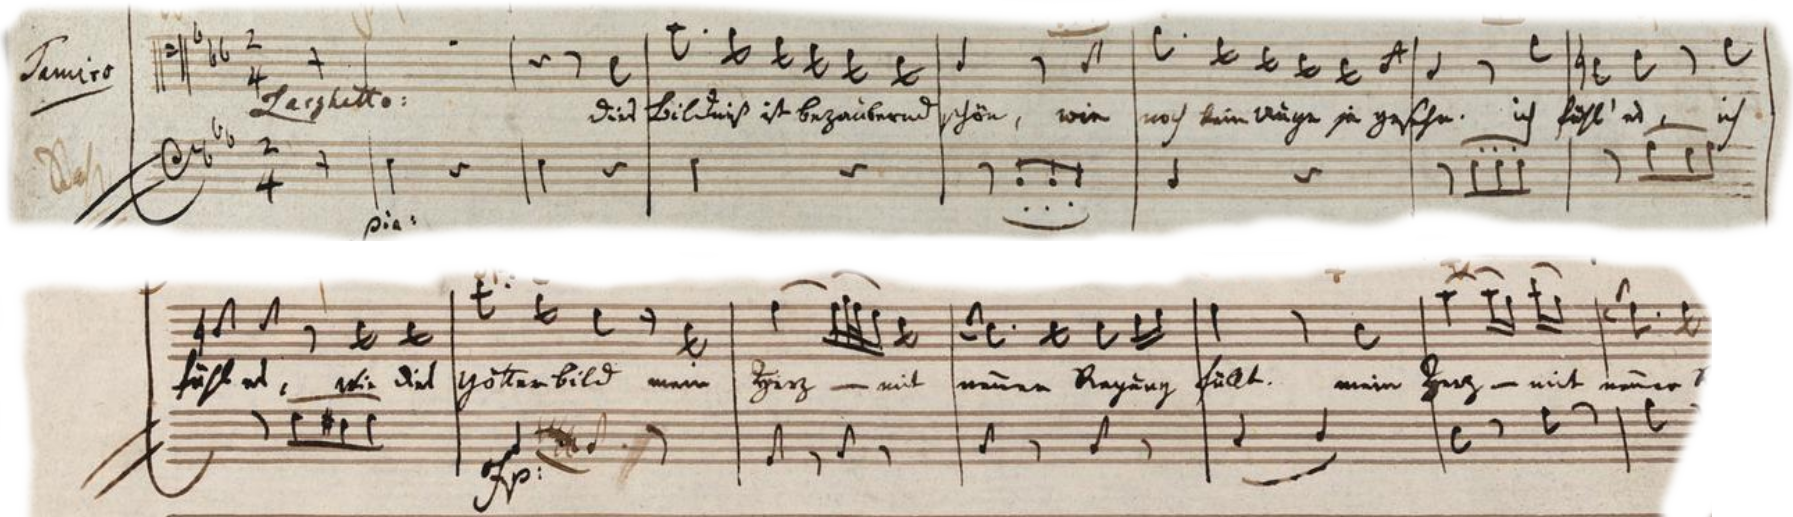 Tamino
Larghetto:
dies Bildniß ist bezaubernd schön, wie noch kein Auge je gesehn. ich fühl' es, ich
Baß
pia:
fühl es, wie dies Götterbild mein Herz — mit neuer Regung füllt. mein Herz — mit neuer
fp: